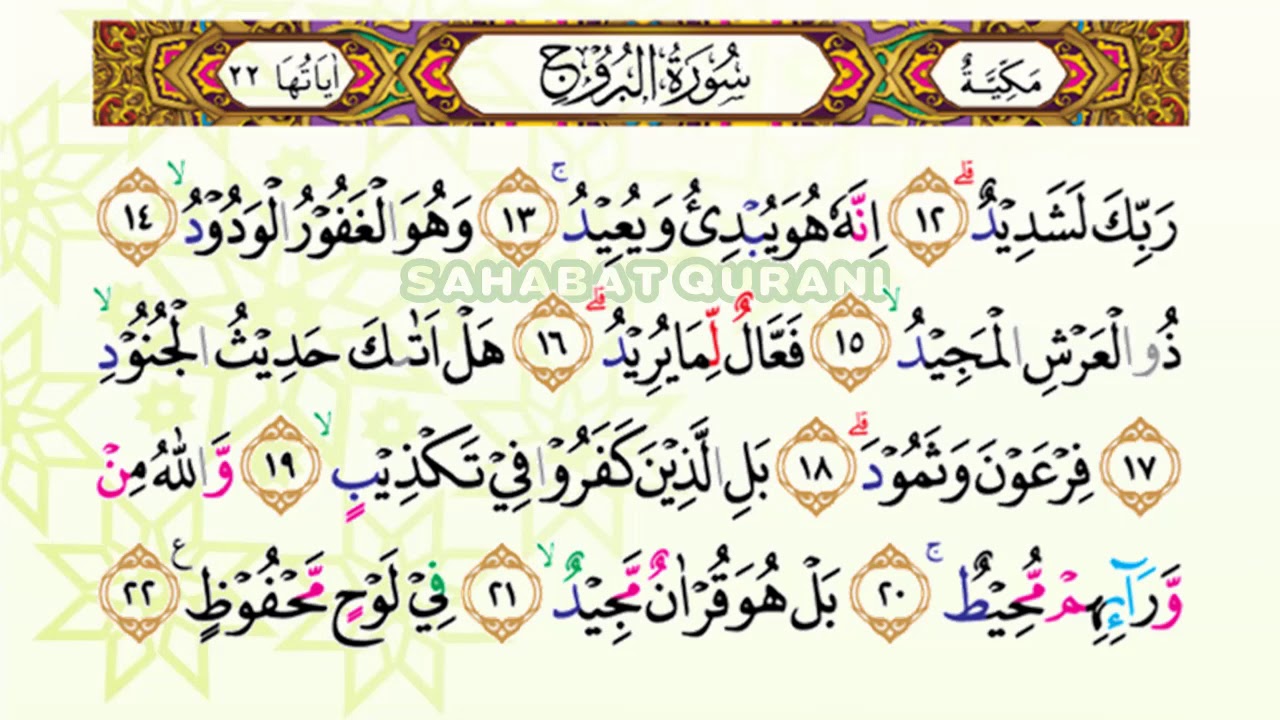 مَكِيَّةٌ سُوْرَةُ الْبُرُوْجِ اٰيَاتُهَا ٢٢
رَبِّكَ لَشَدِيْدٌ ۗ ١٢ اِنَّهٗ هُوَ يُبْدِئُ وَيُعِيْدُ ۚ ١٣ وَهُوَ الْغَفُوْرُ الْوَدُوْدُ ۙ ١٤
SAHABAT QURANI
ذُو الْعَرْشِ الْمَجِيْدُ ۙ ١٥ فَعَّالٌ لِّمَا يُرِيْدُ ۗ ١٦ هَلْ اَتٰىكَ حَدِيْثُ الْجُنُوْدِ ۙ
١٧ فِرْعَوْنَ وَثَمُوْدَ ۗ ١٨ بَلِ الَّذِيْنَ كَفَرُوْا فِيْ تَكْذِيْبٍ ۙ ١٩ وَّاللّٰهُ مِنْ
وَّرَاۤىِٕهِمْ مُّحِيْطٌ ۚ ٢٠ بَلْ هُوَ قُرْاٰنٌ مَّجِيْدٌ ۙ ٢١ فِيْ لَوْحٍ مَّحْفُوْظٍ ࣖ ٢٢